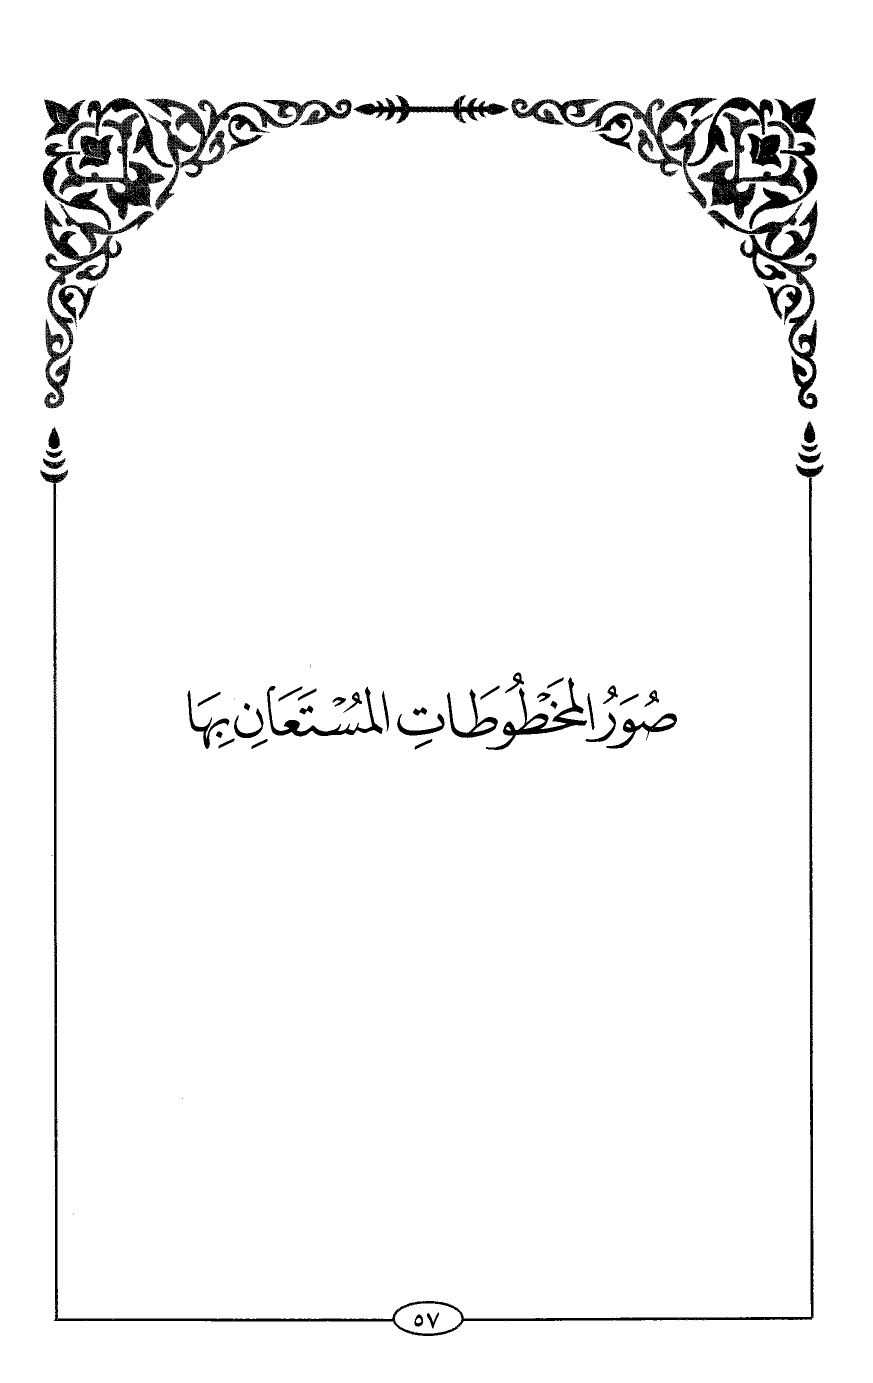 صُوَرُ المَخْطُوطَاتِ المُسْتَعَانِ بِهَا
٥٧